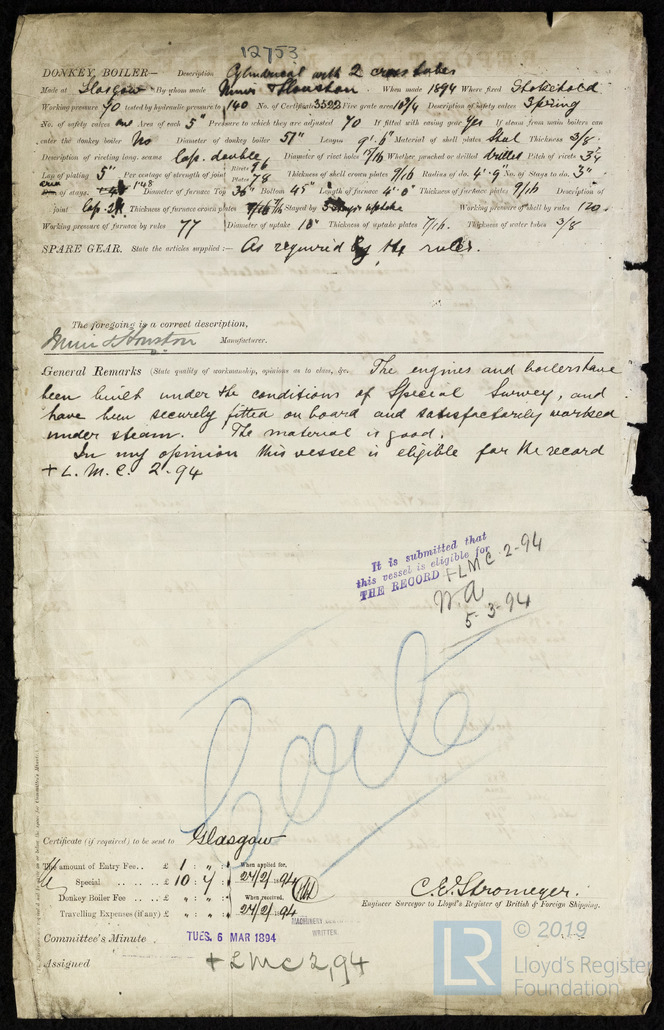 12753
DONKEY BOILER— Description Cylindrical with 2 cross tubes
Made at Glasgow By whom made Muir & Houston When made 1894 Where fixed Stokehold
Working pressure 70 tested by hydraulic pressure to 140 No. of Certificate 3322 Fire grate area 10 3/4 Description of safety valves Spring
No. of safety valves one Area of each 5" Pressure to which they are adjusted 70 If fitted with easing gear yes If steam from main boilers can
enter the donkey boiler No Diameter of donkey boiler 57" Length 9'.6" Material of shell plates Steel Thickness 3/8
Description of riveting long. seams Lap. double Diameter of rivet holes 13/16 Whether punched or drilled drilled Pitch of rivets 3 1/4
Lap of plating 5" Per centage of strength of joint Rivets 76 Plates 78 Thickness of shell crown plates 9/16 Radius of do. 4'.9" No. of Stays to do. 3"
of stays. Diameter of furnace Top 36" Bottom 45" Length of furnace 4'.0" Thickness of furnace plates 9/16 Description of
joint Lap. 2R Thickness of furnace crown plates Stayed by uptake Working pressure of shell by rules 120.
Working pressure of furnace by rules 77 Diameter of uptake 10" Thickness of uptake plates 7/16. Thickness of water tubes 3/8
SPARE GEAR. State the articles supplied:— As required by the rules.
The foregoing is a correct description,
Muir & Houston Manufacturer.
General Remarks (State quality of workmanship, opinions as to class, &c. The engines and boilers have
been built under the conditions of Special Survey, and
have been securely fitted on board and satisfactorily worked
under steam. The material is good.
In my opinion this vessel is eligible for the record
+ L. M. C. 2-94
It is submitted that
this vessel is eligible for
THE RECORD + LMC 2-94
5-3-94
Certificate (if required) to be sent to Glasgow
The amount of Entry Fee.. £ 1 : " : When applied for,
Special .. £ 10 : 4 : 24/2/1894
Donkey Boiler Fee £ " : " : When received,
Travelling Expenses (if any) £ " : " : 24/2/94
MACHINERY
WRITTEN
C. E. Stromeyer.
Engineer Surveyor to Lloyd's Register of British & Foreign Shipping.
Committee's Minute TUES. 6 MAR 1894
Assigned + LMC 2,94
LR © 2019
Lloyd's Register
Foundation